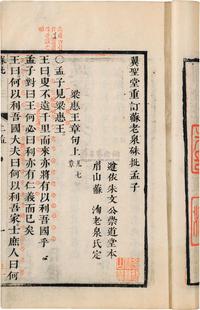 翼聖堂重訂蘇老泉硃批孟子
遵依朱文公崇道堂本
眉山蘇洵老泉氏定
梁惠王章句上 凡七章
○孟子見梁惠王
王曰叟不遠千里而來亦將有以利吾國乎
孟子對曰王何必曰利亦有仁義而已矣
王曰何以利吾國大夫曰何以利吾家士庶人曰何